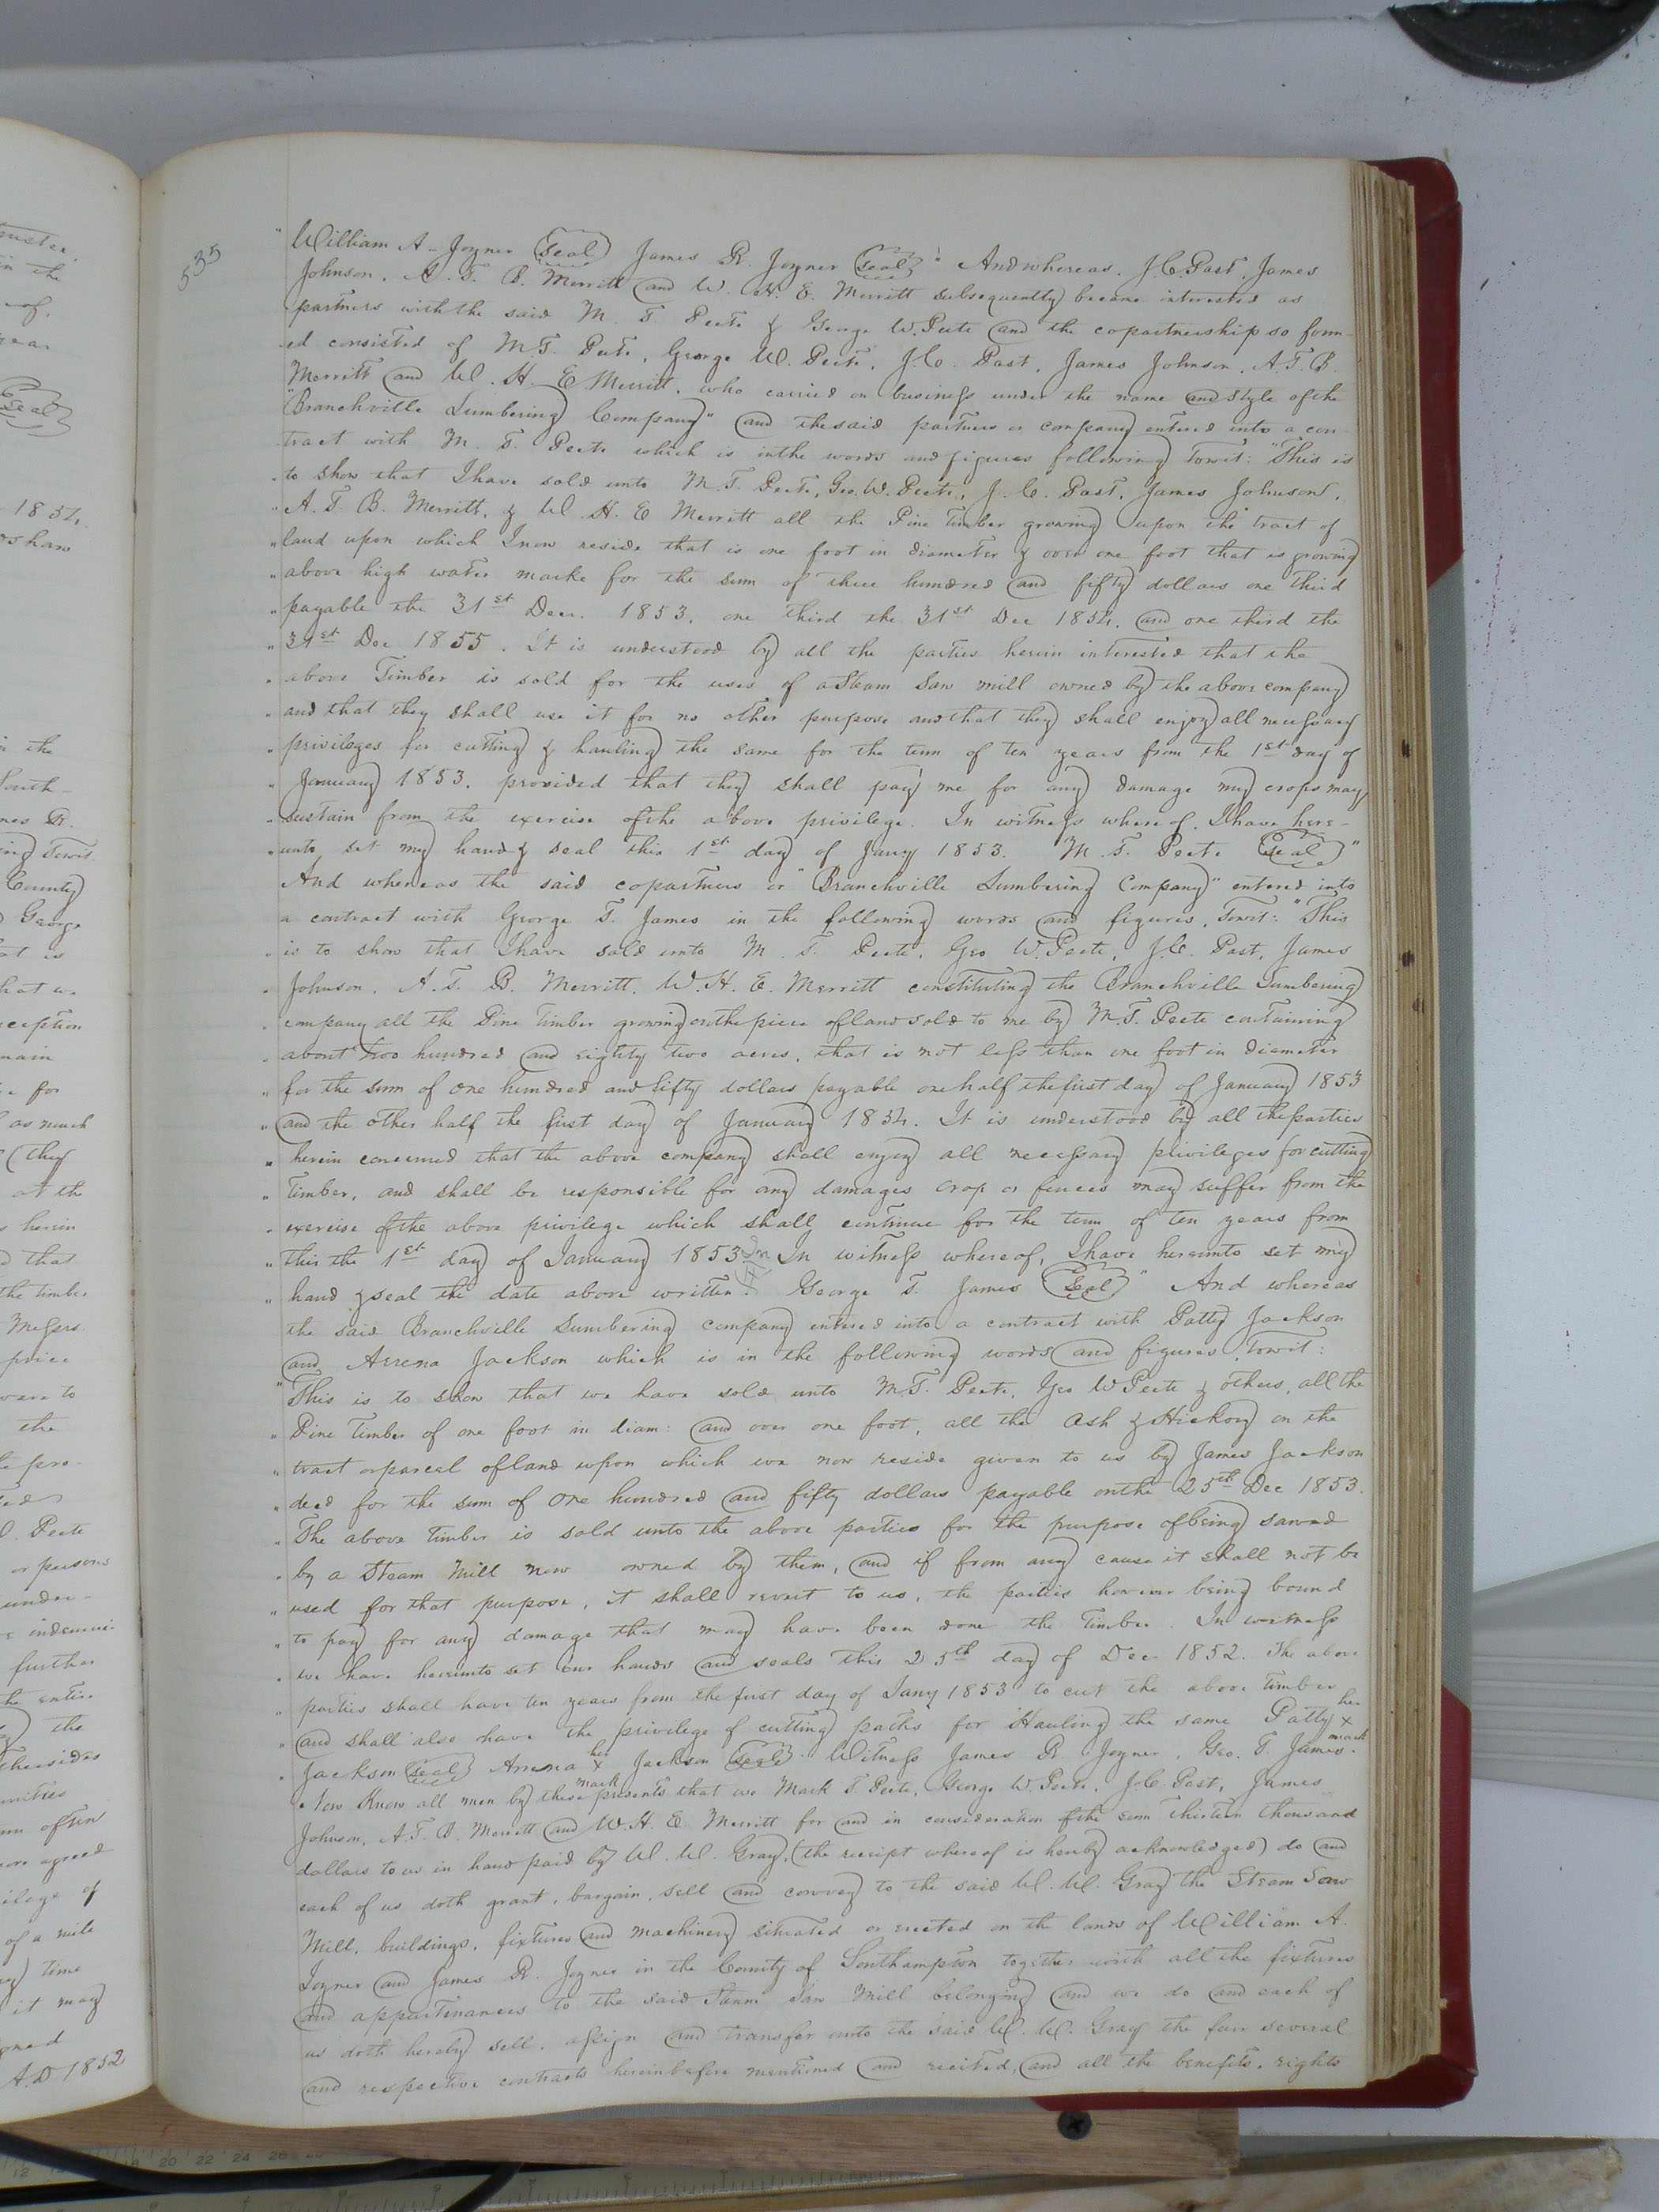 535
"William A. Joyner (Seal) James R. Joyner (Seal)" And whereas, J. C. Past, James
Johnson, A. T. B. Merritt and W. H. E. Merritt subsequently became interested as
partners with the said M. T. Peete & George W. Peete and the copartnership so form-
ed consisted of M. T. Peete, George W. Peete, J. C. Past, James Johnson, A. T. B.
Merritt and W. H. E. Merritt, who carried on business under the name and style of the
"Branchville Lumbering Company" and the said partners or company entered into a con-
tract with M. T. Peete which is in the words and figures following Towit: "This is
" to show that I have sold unto M. T. Peete, Geo. W. Peete, J. C. Past, James Johnson,
" A. T. B. Merritt, & W. H. E. Merritt all the Pine timber growing upon the tract of
" land upon which I now reside that is one foot in diameter & over one foot that is growing
" above high water marke for the sum of three hundred and fifty dollars one third
" payable the 31st Decr. 1853, one third the 31st Dec 1854, and one third the
" 31st Dec 1855. It is understood by all the parties herein interested that the
" above Timber is sold for the uses of a Steam Saw mill owned by the above company
" and that they shall use it for no other purpose and that they shall enjoy all necessary
" privileges for cutting & hauling the same for the term of ten years from the 1st day of
" January 1853, provided that they shall pay me for any damage my crops may
" sustain from the exercise of the above privilege. In witness whereof, I have here-
" unto set my hand & seal this 1st day of Jany 1853. M. T. Peete (Seal)"
And whereas the said copartners or "Branchville Lumbering Company" entered into
a contract with George T. James in the following words and figures, Towit: "This
" is to show that I have sold unto M. T. Peete, Geo W. Peete, J. C. Past, James
" Johnson, A. T. B. Merritt, W. H. E. Merritt constituting the Branchville Lumbering
" company all the Pine timber growing on the piece of land sold to me by M. T. Peete containing
" about two hundred and eighty two acres, that is not less than one foot in diameter
" for the sum of one hundred and fifty dollars payable one half the first day of January 1853
" and the other half the first day of January 1854. It is understood by all the parties
" herein concerned that the above company shall enjoy all necessary privileges for cutting
" timber, and shall be responsible for any damages crop or fences may suffer from the
" exercise of the above privilege which shall continue for the term of ten years from
" this the 1st day of January 1853. In witness whereof, I have hereunto set my
" hand & seal the date above written. George T. James (Seal)" And whereas
the said Branchville Lumbering company entered into a contract with Patty Jackson
and Arrena Jackson which is in the following words and figures, Towit:
"This is to show that we have sold unto M. T. Peete, Geo W Peete & others, all the
" Pine timber of one foot in diam: and over one foot, all the Ash & Hickory on the
" tract or parcel of land upon which we now reside given to us by James Jackson
" decd for the sum of one hundred and fifty dollars payable on the 25th Dec 1853.
" The above timber is sold unto the above parties for the purpose of being sawed
" by a Steam Mill now owned by them, and if from any cause it shall not be
" used for that purpose, it shall revert to us, the parties however being bound
" to pay for any damage that may have been done the timber. In witness
" we have hereunto set our hands and seals this 25th day of Dec 1852. The above
" parties shall have ten years from the first day of Jany 1853 to cut the above timber
" and shall also have the privilege of cutting paths for Hauling the same Patty her x mark
" Jackson (Seal) Arrena her x mark Jackson (Seal) Witness James R. Joyner, Geo. T. James.
Now Know all men by these presents that we Mark T. Peete, George W. Peete, J. C. Past, James
Johnson, A. T. B. Merritt and W. H. E. Merritt for and in consideration of the sum Thirteen thousand
dollars to us in hand paid by W. W. Gray, (the receipt whereof is hereby acknowledged) do and
each of us doth grant, bargain, sell and convey to the said W. W. Gray the Steam Saw
Mill, buildings, fixtures and machinery situated or erected on the lands of William A.
Joyner and James R. Joyner in the County of Southampton together with all the fixtures
and appurtenances to the said Steam Saw Mill belonging and we do and each of
us doth hereby sell, assign and transfer unto the said W. W. Gray the four several
and respective contracts hereinbefore mentioned and recited, and all the benefits, rights